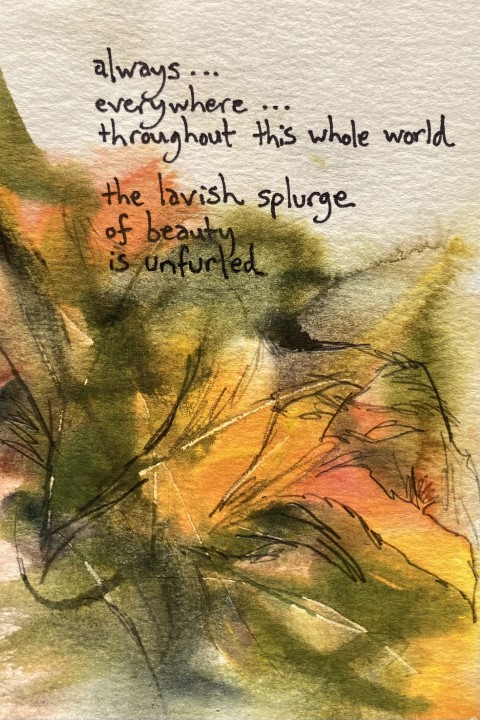 always...
everywhere...
throughout this whole world
the lavish splurge
of beauty
is unfurled